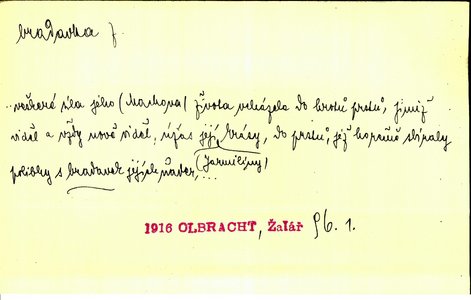 bradavka f.
..veškerá síla jeho (Machova) života vcházela do hrotů prstů, jimiž
viděl a vždy nově viděl, úžas její krásy, do prstů, jež horečně sbíraly
polibky s bradavek jejích ňader, (Jarmiliny) ...
1916 OLBRACHT, Žalář 96. 1.